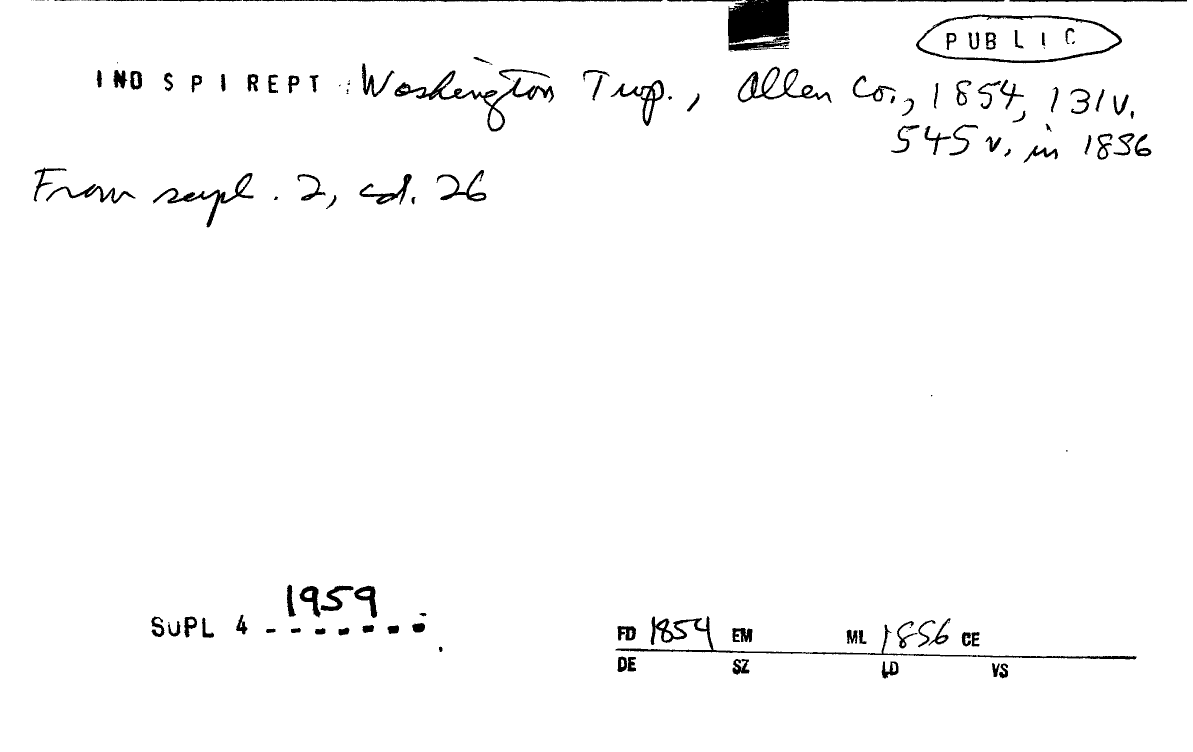 PUBLIC
IND SPI REPT : Washington Twp., Allen Co., 1854, 131v.
545 v. in 1856
From supl. 2, cd. 26
1959
SUPL 4 -------
FD 1854 EM ML 1856 CE
DE SZ LD VS